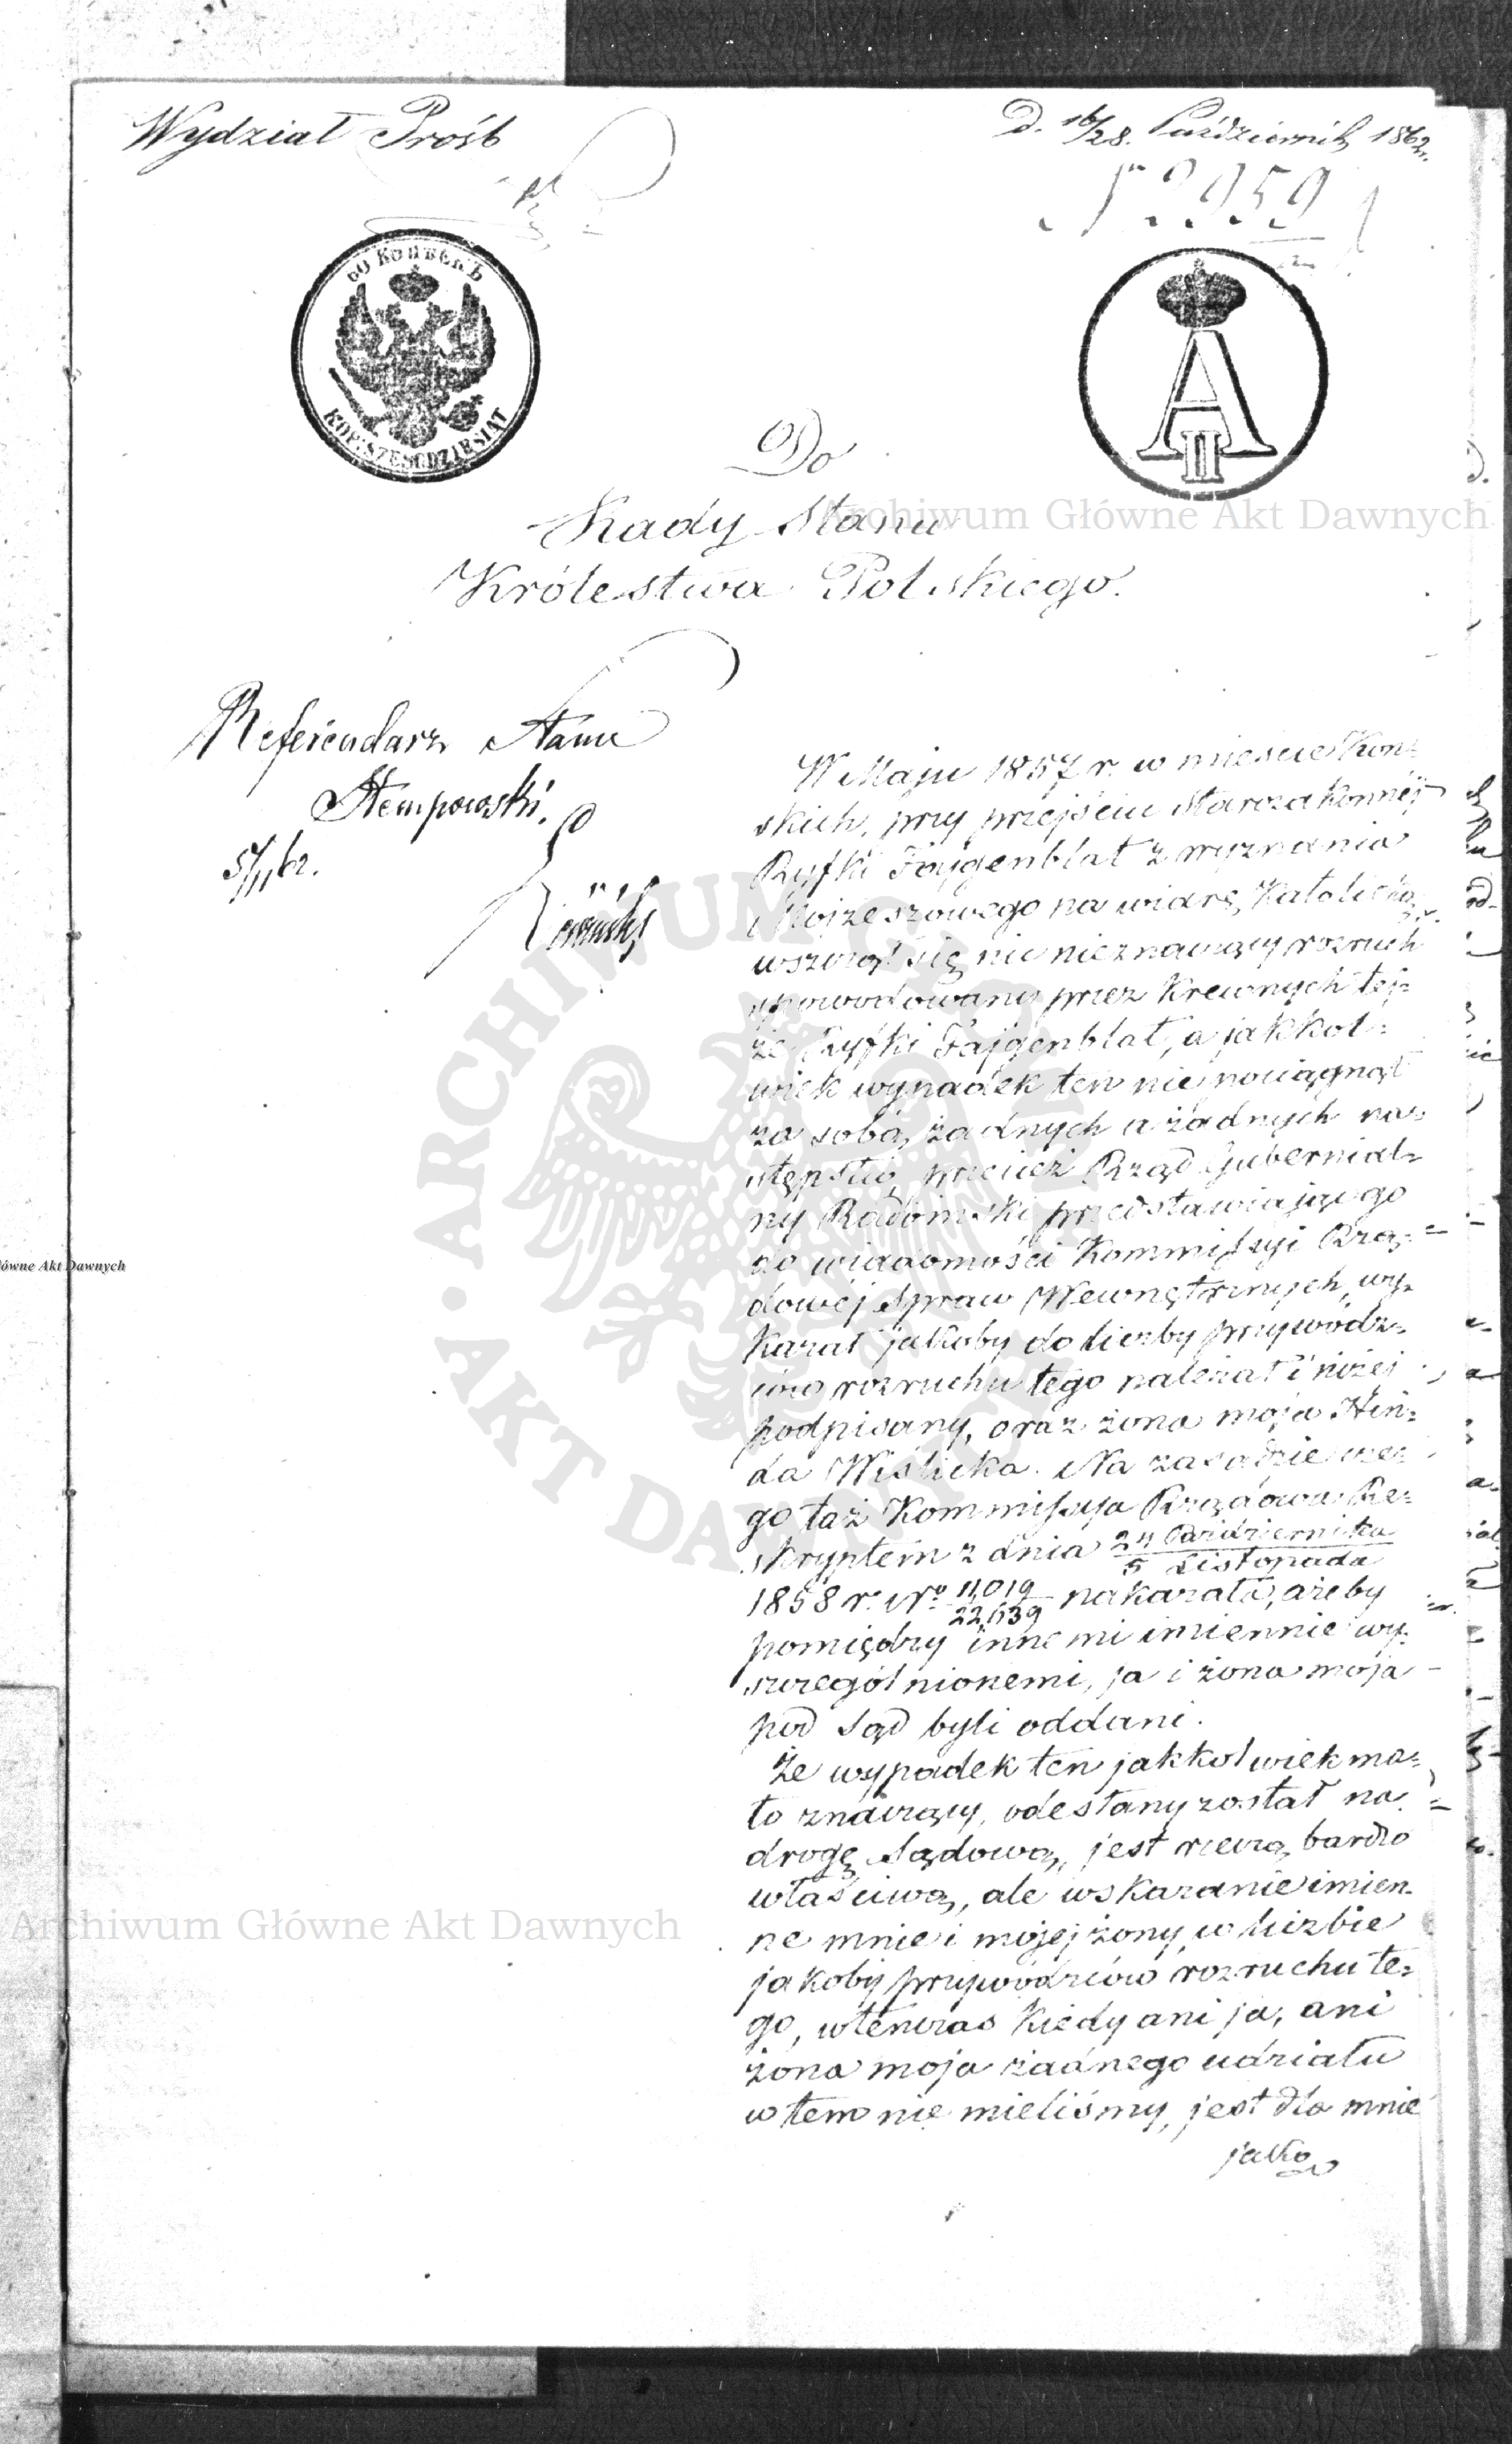 Wydział Próśb
D. 16/28. Październik 1862 r.
60 КОПѢЕКЪ
KOP: SZEŚĆDZIESIĄT
A II
Do
Rady Stanu
Królestwa Polskiego.
Referendarz Stanu
Stempowski.
5/11 62.
W Maju 1857 r. w mieście Koń=
skich, przy przejściu Starozakonnéj
Ryfki Fajgenblat z wyznania
Mojżeszowego na wiarę Katolicką,
wszczął się nic nieznaczący rozruch
spowodowany przez Krewnych tej=
że Ryfki Fajgenblat, a jakkol=
wiek wypadek ten nie pociągnął
za sobą żadnych a żadnych na=
stępstw, przecież Rząd Gubernial=
ny Radomski przedstawiając go
do wiadomości Kommissyi Rzą=
dowéj Spraw Wewnętrznych, wy=
kazał jakoby do liczby przywódz=
ców rozruchu tego należał i niżej
podpisany, oraz żona moja Hin=
da Wiślicka. Na zasadzie cze=
go taż Kommissya Rządowa Re=
skryptem z dnia 24 Października
5 Listopada
1858 r. No 11,019
22,639 nakazała, ażeby
pomiędzy innemi imiennie wy=
szczególnionemi, ja i żona moja
pod Sąd byli oddani.
Że wypadek ten jakkolwiek ma=
ło znaczący, odesłany został na
drogę Sądową, jest rzeczą bardzo
właściwą, ale wskazanie imien=
ne mnie i mojej żony w liczbie
jakoby przywódzców rozruchu te=
go, wtenczas kiedy ani ja, ani
żona moja żadnego udziału
w tem nie mieliśmy, jest dla mnie
jako
Archiwum Główne Akt Dawnych
ówne Akt Dawnych
ARCHIWUM GŁÓWNE AKT DAWNYCH
Archiwum Główne Akt Dawnych